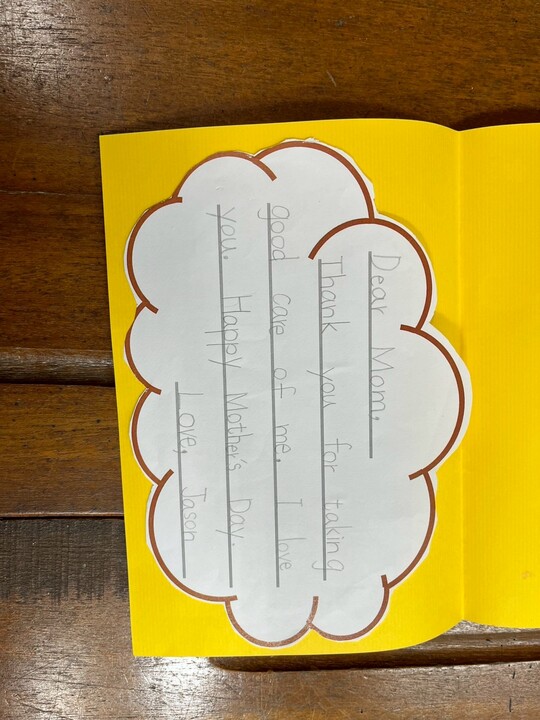 Dear Mom,
Thank you for taking
good care of me. I love
you. Happy Mother's Day.
Love, Jason